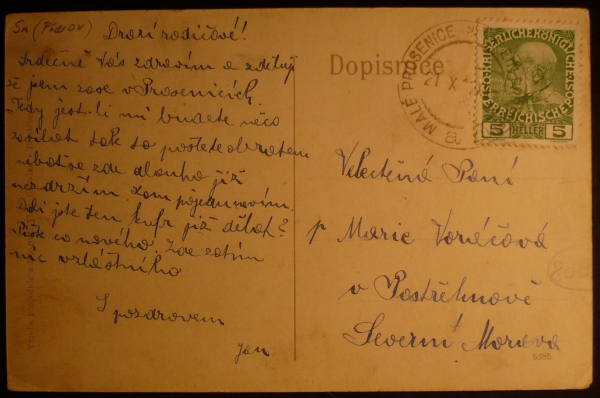 Sn (Přerov)
Drazí rodičové!
Srdečně Vás zdravím a zděluji
že jsem zase v Prosenicích.
Tedy jest-li mi budete něco
posílat tak to pošlete obratem
neboť se zde dlouho již
nezdržím.
Dali jste ten kufr již dělat?
Pište co nového. Zde zatím
nic zvláštního
S pozdravem
Jan
Dopisnice
MALÉ PROSENICE
21 X
KAISERLICHE KÖNIGLICHE
ÖSTERREICHISCHE POST
5 HELLER 5
Velectěná Paní
p Marie Voráčová
v Postřelmově
Severní Morava